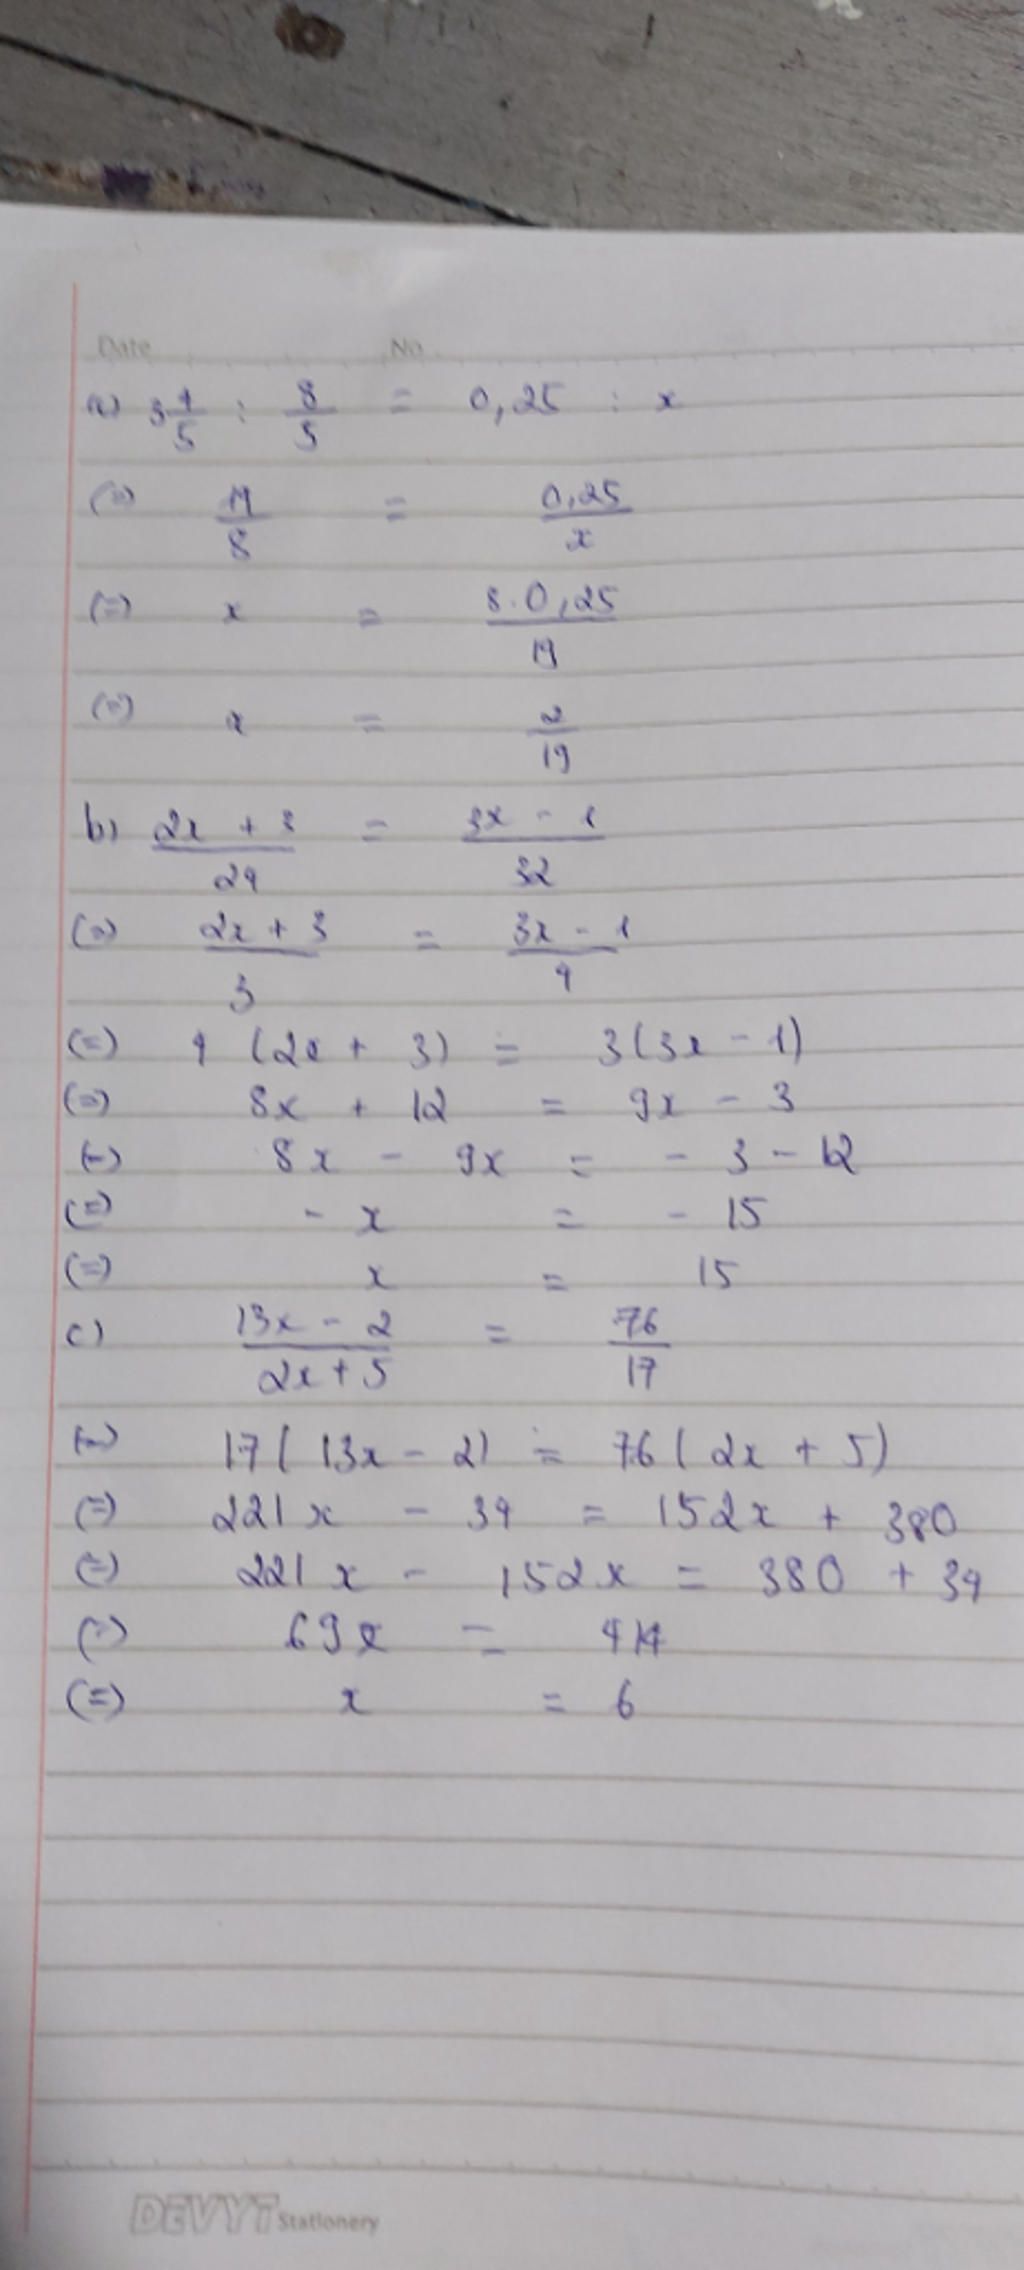 Date No.
a) 3 4/5 : 8/5 = 0,25 : x
(=) 19/8 = 0,25/x
(=) x = 8.0,25/19
(=) x = 2/19
b) 2x + 3/24 = 3x - 1/32
(=) 2x + 3/3 = 3x - 1/4
(=) 4 (2x + 3) = 3(3x - 1)
(=) 8x + 12 = 9x - 3
(=) 8x - 9x = - 3 - 12
(=) - x = - 15
(=) x = 15
c) 13x - 2/2x + 5 = 76/17
(=) 17( 13x - 2) = 76( 2x + 5)
(=) 221x - 34 = 152x + 380
(=) 221x - 152x = 380 + 34
(=) 69x = 414
(=) x = 6
DEVYT Stationery